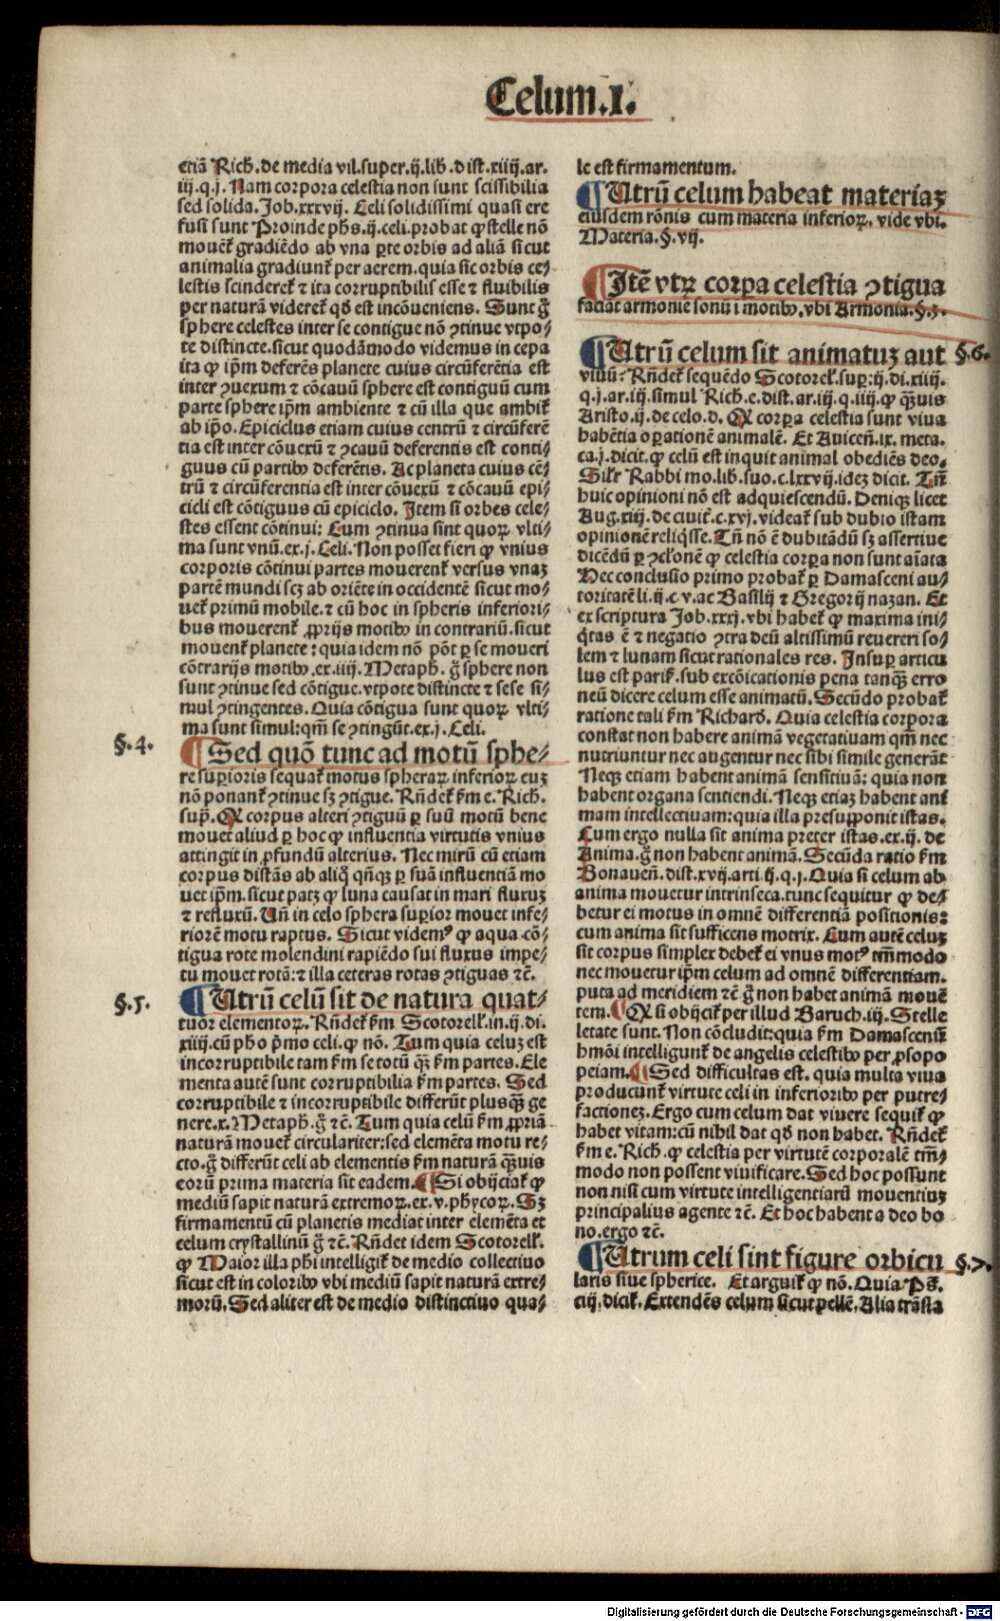 Celum.1.
etiã Rich. de media vil. super .ij. lib. dist. xiiij. ar.
iij. q. j. Nam corpora celestia non sunt scissibilia
sed solida. Job. xxxvij. Celi solidissimi quasi ere
fusi sunt Proinde phs. ij. celi. probat ꝙ stelle nõ
mouent᷑ gradiẽdo ab vna ꝑte orbis ad aliã sicut
animalia gradiunt᷑ per aerem. quia sic orbis ce⸗
lestis scinderet᷑ ⁊ ita corruptibilis esse ⁊ fluibilis
per naturã videret᷑ qđ est incõueniens. Sunt g̃
sphere celestes inter se contigue nõ ꝯtinue vtpo⸗
te distincte. sicut quodãmodo videmus in cepa
ita ꝙ ip̃m deferẽs planete cuius circũferẽtia est
inter ꝯuexum ⁊ cõcauũ sphere est contiguũ cum
parte sphere ip̃m ambiente ⁊ cũ illa que ambit᷑
ab ip̃o. Epiciclus etiam cuius centrũ ⁊ circũferẽ
tia est inter cõuexũ ⁊ ꝯcauũ deferentis est conti⸗
guus cũ partibꝰ deferẽtis. Ac planeta cuius cẽ⸗
trũ ⁊ circũferentia est inter cõuexũ ⁊ cõcauũ epi⸗
cicli est cõtiguus cũ epiciclo. Item si orbes cele⸗
stes essent cõtinui: Cum ꝯtinua sint quoꝝ vlti⸗
ma sunt vnũ. ex. j. Celi. Non posset fieri ꝙ vnius
corporis cõtinui partes mouerent᷑ versus vnaꝫ
partẽ mundi scꝫ ab oriẽte in occidentẽ sicut mo⸗
uet᷑ primũ mobile. ⁊ cũ hoc in spheris inferiori⸗
bus mouerent᷑ ꝓprijs motibꝰ in contrariũ. sicut
mouent᷑ planete: quia idem nõ põt ꝑ se moueri
cõtrarijs motibꝰ. ex. iiij. Metaph. g̃ sphere non
sunt ꝯtinue sed cõtigue. vtpote distincte ⁊ sese si⸗
mul ꝯtingentes. Quia cõtigua sunt quoꝝ vlti⸗
ma sunt simul: qm̃ se ꝯtingũt. ex. j. Celi.
§.4.
¶ Sed quõ tunc ad motũ sphe⸗
re suꝑioris sequat᷑ motus spheraꝝ inferioꝝ cuꝫ
nõ ponant᷑ ꝯtinue sꝫ ꝯtigue. Rñdet᷑ ẜm e. Rich.
sup̃. Ꝙ corpus alteri ꝯtiguũ ꝑ suũ motũ bene
mouet aliud ꝑ hoc ꝙ influentia virtutis vnius
attingit in ꝓfundũ alterius. Nec mirũ cũ etiam
corpus distãs ab aliq̃ qñqꝫ ꝑ suã influentiã mo
uet ip̃m. sicut patꝫ ꝙ luna causat in mari fluxuꝫ
⁊ refluxũ. Uñ in celo sphera suꝑior mouet infe⸗
riorẽ motu raptus. Sicut videmꝰ ꝙ aqua cõ⸗
tigua rote molendini rapiẽdo sui fluxus impe⸗
tu mouet rotã: ⁊ illa ceteras rotas ꝯtiguas ⁊c̃.
§.5.
¶ Utrũ celũ sit de natura quat⸗
tuor elementoꝝ. Rñdet᷑ ẜm Scotorell. in. ij. di.
xiiij. cũ pho p̃mo celi. ꝙ nõ. Tum quia celuꝫ est
incorruptibile tam ẜm se totũ qꝫ̃ ẜm partes. Ele
menta autẽ sunt corruptibilia ẜm partes. Sed
corruptibile ⁊ incorruptibile differũt plusqꝫ̃ ge
nere. x. Metaph. g̃ ⁊c̃. Tum quia celũ ẜm ꝓpriã
naturã mouet᷑ circulariter: sed elemẽta motu re⸗
cto. g̃ differũt celi ab elementis ẜm naturã qꝫ̃uis
eorũ prima materia sit eadem. ¶ Si obijciat᷑ ꝙ
mediũ sapit naturã extremoꝝ. ex. v. phycoꝝ. Sꝫ
firmamentũ cũ planetis mediat inter elemẽta et
celum crystallinũ g̃ ⁊c̃. Rñdet idem Scotorell.
ꝙ Maior illa phi intelligit᷑ de medio collectiuo
sicut est in coloribꝰ vbi mediũ sapit naturã extre⸗
morũ. Sed aliter est de medio distinctiuo qua⸗
le est firmamentum.
¶ Utrũ celum habeat materiaꝫ
eiusdem rõnis cum materia inferioꝝ. vide vbi.
Materia. §. vij.
¶ Itẽ vtꝝ corꝑa celestia ꝯtigua
faciat armonie sonũ ĩ motibꝰ. vbi Armonia. §. 3.
¶ Utrũ celum sit animatuꝫ aut
§.6.
viuũ: Rñdet᷑ sequẽdo Scotorel. suꝑ. ij. di. xiiij.
q. j. ar. iij. simul Rich. e. dist. ar. iij. q. iij. ꝙ qꝫ̃uis
Aristo. ij. de celo. d. Ꝙ corꝑa celestia sunt viua
habẽtia oꝑationẽ animalẽ. Et Auicen̄. ix. meta.
ca. j. dicit. ꝙ celũ est inquit animal obediẽs deo.
Sil̃r Rabbi mo. lib. suo. c. lxxvij. ideꝫ dicit. Tñ
huic opinioni nõ est adquiescendũ. Deniqꝫ licet
Aug. xiij. de ciuit᷑. c. xvj. videat᷑ sub dubio istam
opinionẽ reliq̃sse. Tñ nõ ẽ dubitãdũ sꝫ assertiue
dicẽdũ ꝑ ꝯclonẽ ꝙ celestia corꝑa non sunt aĩata
Hec conclusio primo probat᷑ ꝑ Damasceni au⸗
toritatẽ li. ij. c. v. ac Basilij ⁊ Gregorij nazan. Et
ex scriptura Job. xxxj. vbi habet᷑ ꝙ maxima ini⸗
q̃tas ẽ ⁊ negatio ꝯtra deũ altissimũ reuereri so⸗
lem ⁊ lunam sicut rationales res. Insuꝑ articu
lus est parif. sub excõicationis pena tanqꝫ̃ erro
neũ dicere celum esse animatũ. Secũdo probat᷑
ratione tali ẜm Richard. Quia celestia corpora
constat non habere animã vegetatiuam qm̃ nec
nutriuntur nec augentur nec sibi simile generãt
Neqꝫ etiam habent animã sensitiuã: quia non
habent organa sentiendi. Neqꝫ etiaꝫ habent ani
mam intellectiuam: quia illa presupponit istas.
Cum ergo nulla sit anima preter istas. ex. ij. de
Anima. g̃ non habent animã. Secũda ratio ẜm
Bonauen̄. dist. xvij. arti. ij. q. j. Quia si celum ab
anima mouetur intrinseca. tunc sequitur ꝙ de⸗
betur ei motus in omnẽ differentiã positionis:
cum anima sit sufficens motrix. Cum autẽ celuꝫ
sit corpus simplex debet᷑ ei vnus motꝰ tm̃modo
nec mouetur ip̃m celum ad omnẽ differentiam.
puta ad meridiem ⁊c̃ g̃ non habet animã mouẽ
tem. ¶ Ꝙ si obijcit᷑ per illud Baruch. iij. Stelle
letate sunt. Non cõcludit: quia ẜm Damascenũ
hmõi intelligunt᷑ de angelis celestibꝰ per ꝓsopo
peiam. ¶ Sed difficultas est. quia multa viua
producunt᷑ virtute celi in inferioribꝰ per putre⸗
factioneꝫ. Ergo cum celum dat viuere sequit᷑ ꝙ
habet vitam: cũ nihil dat qđ non habet. Rñdet᷑
ẜm e. Rich. ꝙ celestia per virtutẽ corporalẽ tm̃⸗
modo non possent viuificare. Sed hoc possunt
non nisi cum virtute intelligentiarũ mouentiuꝫ
principalius agente ⁊c̃. Et hoc habent a deo bo
no. ergo ⁊c̃.
¶ Utrum celi sint figure orbicu
§.7.
laris siue spherice. Et arguit᷑ ꝙ nõ. Quia Ps.
ciij. dicit᷑. Extendẽs celum sicut pellẽ. Alia trãsla
Digitalisierung gefördert durch die Deutsche Forschungsgemeinschaft - DFG